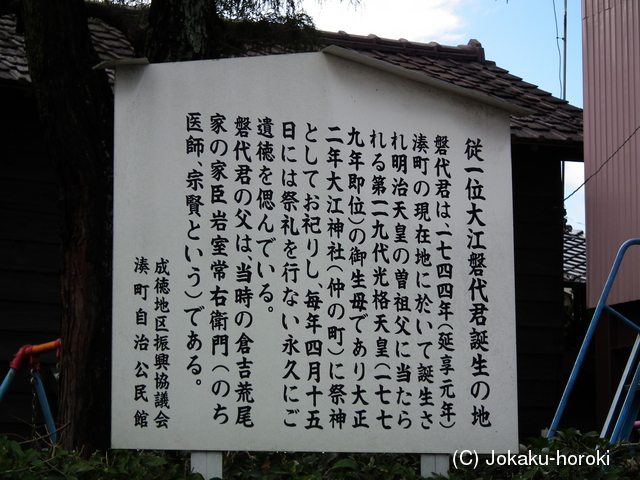 従一位大江磐代君誕生の地
磐代君は、一七四四年(延享元年)
湊町の現在地に於いて誕生さ
れ明治天皇の曽祖父に当たら
れる第一一九代光格天皇(一七七
九年即位)の御生母であり大正
二年大江神社(仲の町)に祭神
としてお祀りし、毎年四月十五
日には祭礼を行ない永久にご
遺徳を偲んでいる。
磐代君の父は、当時の倉吉荒尾
家の家臣岩室常右衛門(のち
医師、宗賢という)である。
成徳地区振興協議会
湊町自治公民館
(C) Jokaku-horoki